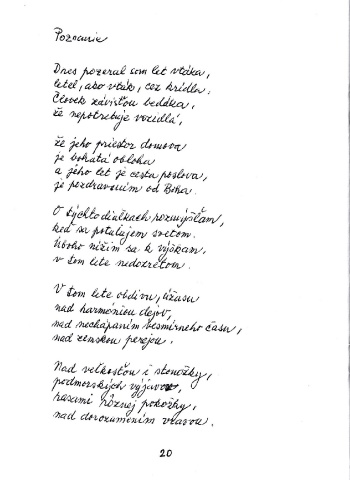 Poznanie
Dnes pozeral som let vtáka,
letel, ako vták, cez krídla.
Človek závisťou bedáka,
že nepotrebuje vozidlá,
že jeho priestor domova
je bohatá obloha
a jeho let je cesta poslova,
je pozdravením od Boha.
O týchto diaľkach rozmýšľam,
keď sa potulujem svetom.
Úboho blížim sa k výškam,
v tom lete nedozretom.
V tom lete obdivu, úžasu
nad harmóniou dejov,
nad nechápaním vesmírneho času,
nad zemskou
Nad veľkosťou i stonožky,
podmorských výjavov,
rasami rôznej pokožky,
nad dorozumením vravou.
20